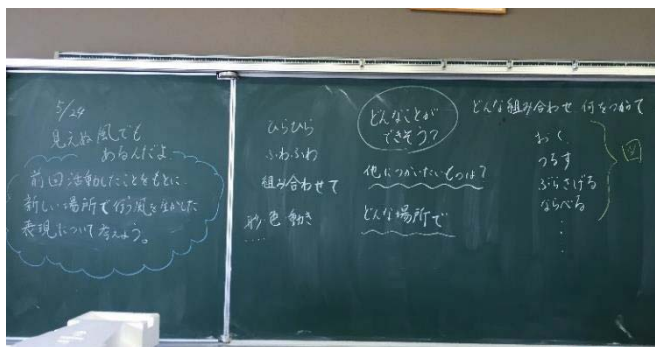 5/24
見えぬ風でも
あるんだよ
前回活動したことをもとに
新しい場所で行う風を生かした
表現について考えよう。
ひらひら
ふわふわ
組み合わせて
形 色 動き
.....
どんなことが
できそう?
他につかいたいものは?
どんな場所で
どんな組み合わせ 何をつかって
おく
つるす
ぶらさげる
ならべる